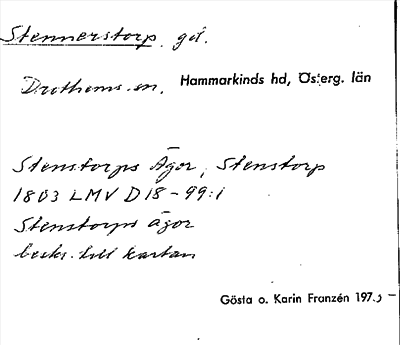 Stennerstorp. gd.
Drothems sn. Hammarkinds hd, Österg. län
Stenstorps Ägor, Stenstorp
1803 LMV D18-99:1
Stenstorps ägor
beskr. till kartan
Gösta o. Karin Franzén 197